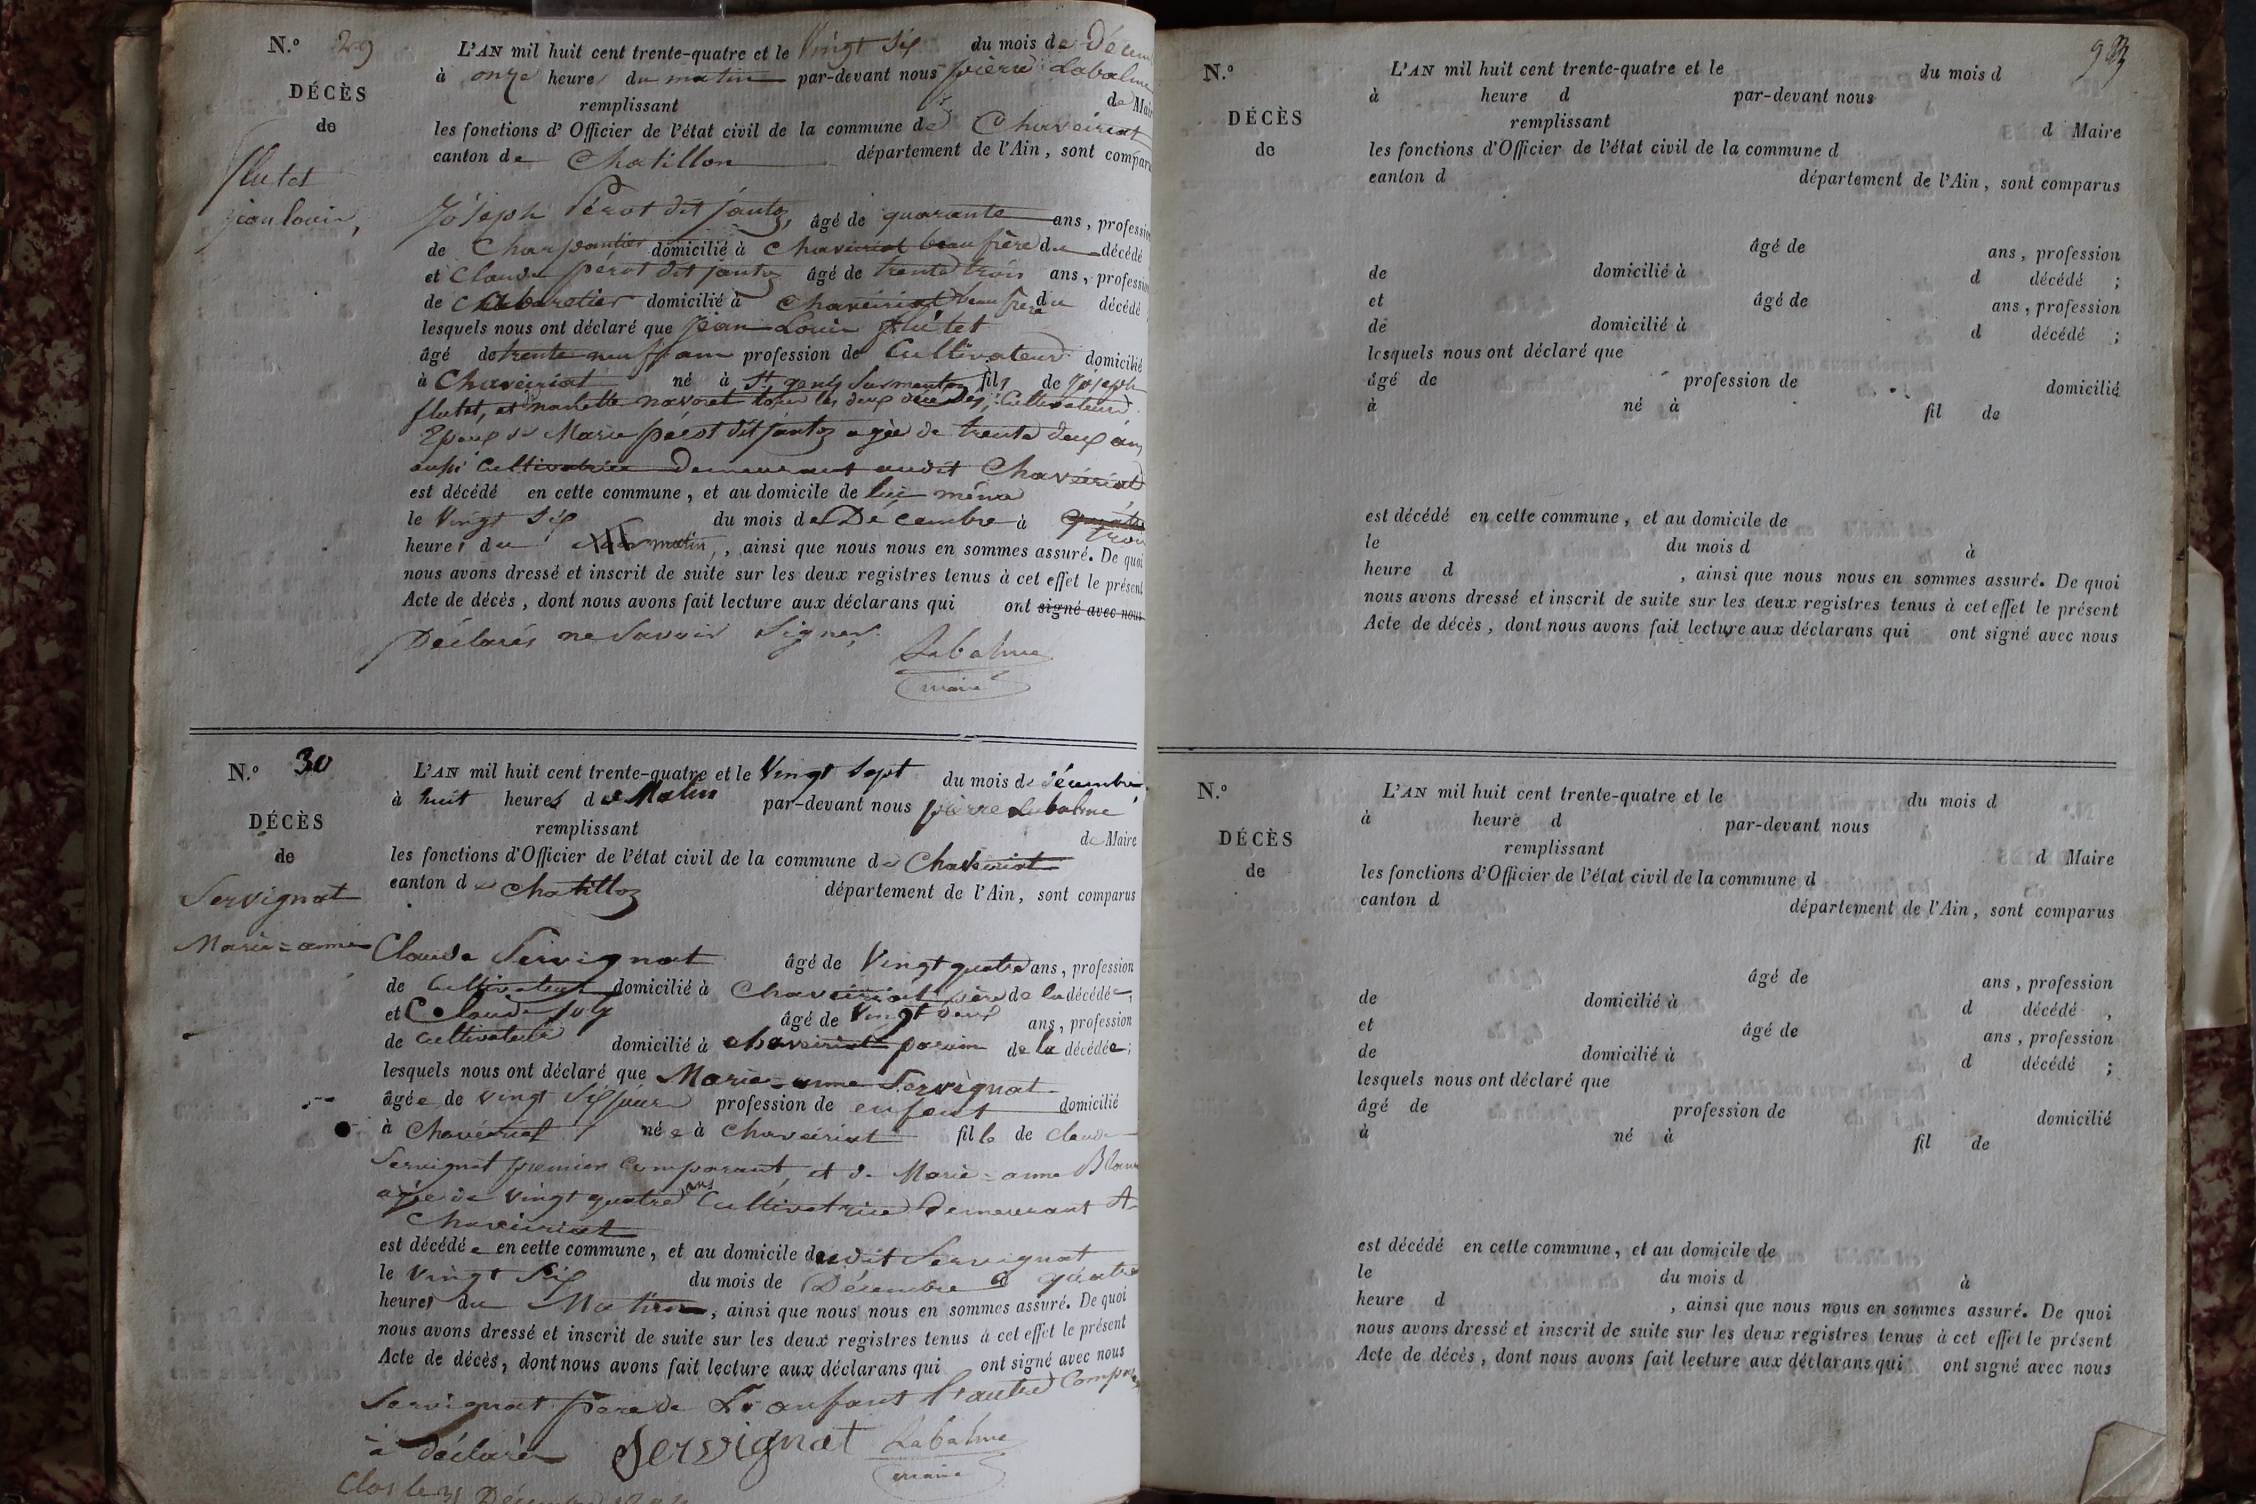 N.º 29
L'AN mil huit cent trente-quatre et le Vingt six du mois de Décem
à onze heures du matin par-devant nous pierre Labalme
DÉCÈS
remplissant de Maire
de
les fonctions d'Officier de l'état civil de la commune de Chaveiriat
canton de Chatillon département de l'Ain, sont comparu
flutet
jean louis,
Joseph Pérot dit jantoz, âgé de quarante ans, profession
de Charpantier domicilié à Chaveiriat beau frère du décédé
et Claude pérot dit jantoz âgé de trente trois ans, profession
de Cabaretier domicilié à Chaveiriat beau frere du décédé
lesquels nous ont déclaré que jean Louis flutet
âgé de trente neuf ans profession de Cultivateur domicilié
à Chaveiriat né à St genis Surmenton fils de joseph
flutet, et nanette navoret tous les deux décédés, Cultivateurs
Epoux de Marie perot dit jantoz agée de trente deux ans
aussi Cultivatrice Demeurant audit Chaveiriat
est décédé en cette commune, et au domicile de lui même
le Vingt six du mois de Décembre à quatre trois
heures du matin, ainsi que nous nous en sommes assuré. De quoi
nous avons dressé et inscrit de suite sur les deux registres tenus à cet effet le présent
Acte de décès, dont nous avons fait lecture aux déclarans qui ont signé avec nous
Déclarés ne Savoir Signer.
Labalme
maire
N.º 30
L'AN mil huit cent trente-quatre et le Vingt Sept du mois de décembre
à huit heures de Matin par-devant nous pierre Labalme
DÉCÈS
remplissant de Maire
de
les fonctions d'Officier de l'état civil de la commune de Chaveiriat
canton de Chatilloz département de l'Ain, sont comparus
Servignat
Marie=anne
Claude Servignat âgé de Vingt quatre ans, profession
de Cultivateur domicilié à Chaveiriat père de la décédée,
et Claude joly âgé de Vingt deux ans, profession
de Cultivateur domicilié à chaveiriat parain de la décédée;
lesquels nous ont déclaré que Marie=anne Servignat
âgée de vingt six jours profession de enfant domicilié
à Chaveiriat née à Chaveiriat fille de claude
Servignat premier Comparant, et de Marie=anne Blanc
agée de vingt quatre ans Cultivatrice Demeurant A
Chaveiriat
est décédée en cette commune, et au domicile dudit Servignat
le Vingt Six du mois de Décembre à quatre
heures du Matin, ainsi que nous nous en sommes assuré. De quoi
nous avons dressé et inscrit de suite sur les deux registres tenus à cet effet le présent
Acte de décès, dont nous avons fait lecture aux déclarans qui ont signé avec nous
Servignat père de L'anfant l'autre Compar
a déclaré Servignat Labalme
maire
Clos le 31 Décembre
N.º
L'AN mil huit cent trente-quatre et le du mois d
à heure d par-devant nous
DÉCÈS
remplissant d Maire
de
les fonctions d'Officier de l'état civil de la commune d
canton d département de l'Ain, sont comparus
âgé de ans, profession
de domicilié à d décédé ;
et âgé de ans, profession
de domicilié à d décédé ;
lesquels nous ont déclaré que
âgé de profession de domicilié
à né à fil de
est décédé en cette commune, et au domicile de
le du mois d à
heure d , ainsi que nous nous en sommes assuré. De quoi
nous avons dressé et inscrit de suite sur les deux registres tenus à cet effet le présent
Acte de décès, dont nous avons fait lecture aux déclarans qui ont signé avec nous
N.º
L'AN mil huit cent trente-quatre et le du mois d
à heure d par-devant nous
DÉCÈS
remplissant d Maire
de
les fonctions d'Officier de l'état civil de la commune d
canton d département de l'Ain, sont comparus
âgé de ans, profession
de domicilié à d décédé ,
et âgé de ans, profession
de domicilié à d décédé ;
lesquels nous ont déclaré que
âgé de profession de domicilié
à né à fil de
est décédé en cette commune, et au domicile de
le du mois d à
heure d , ainsi que nous nous en sommes assuré. De quoi
nous avons dressé et inscrit de suite sur les deux registres tenus à cet effet le présent
Acte de décès, dont nous avons fait lecture aux déclarans qui ont signé avec nous